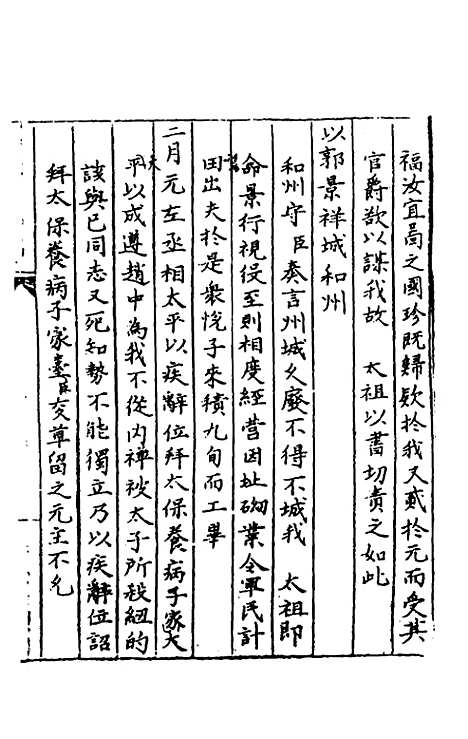 福汝宜啚之國珍既歸欵於我又貳於元而受其
官爵欲以謀我故　太祖以書切責之如此
以郭景祥城和州
和州守臣奏言州城久廢不得不城我　太祖即
命景行視役至則相度經营因址砌業令軍民計
田出夫於是衆悅子來積九旬而工畢
二月元左丞相太平以疾辭位拜太保養病子家大
平以成遵趙中為我不從內禅被太子所殺紐的
該與已同志又死知勢不能獨立乃以疾辭位詔
拜太保養病子家臺臣交草留之元主不允